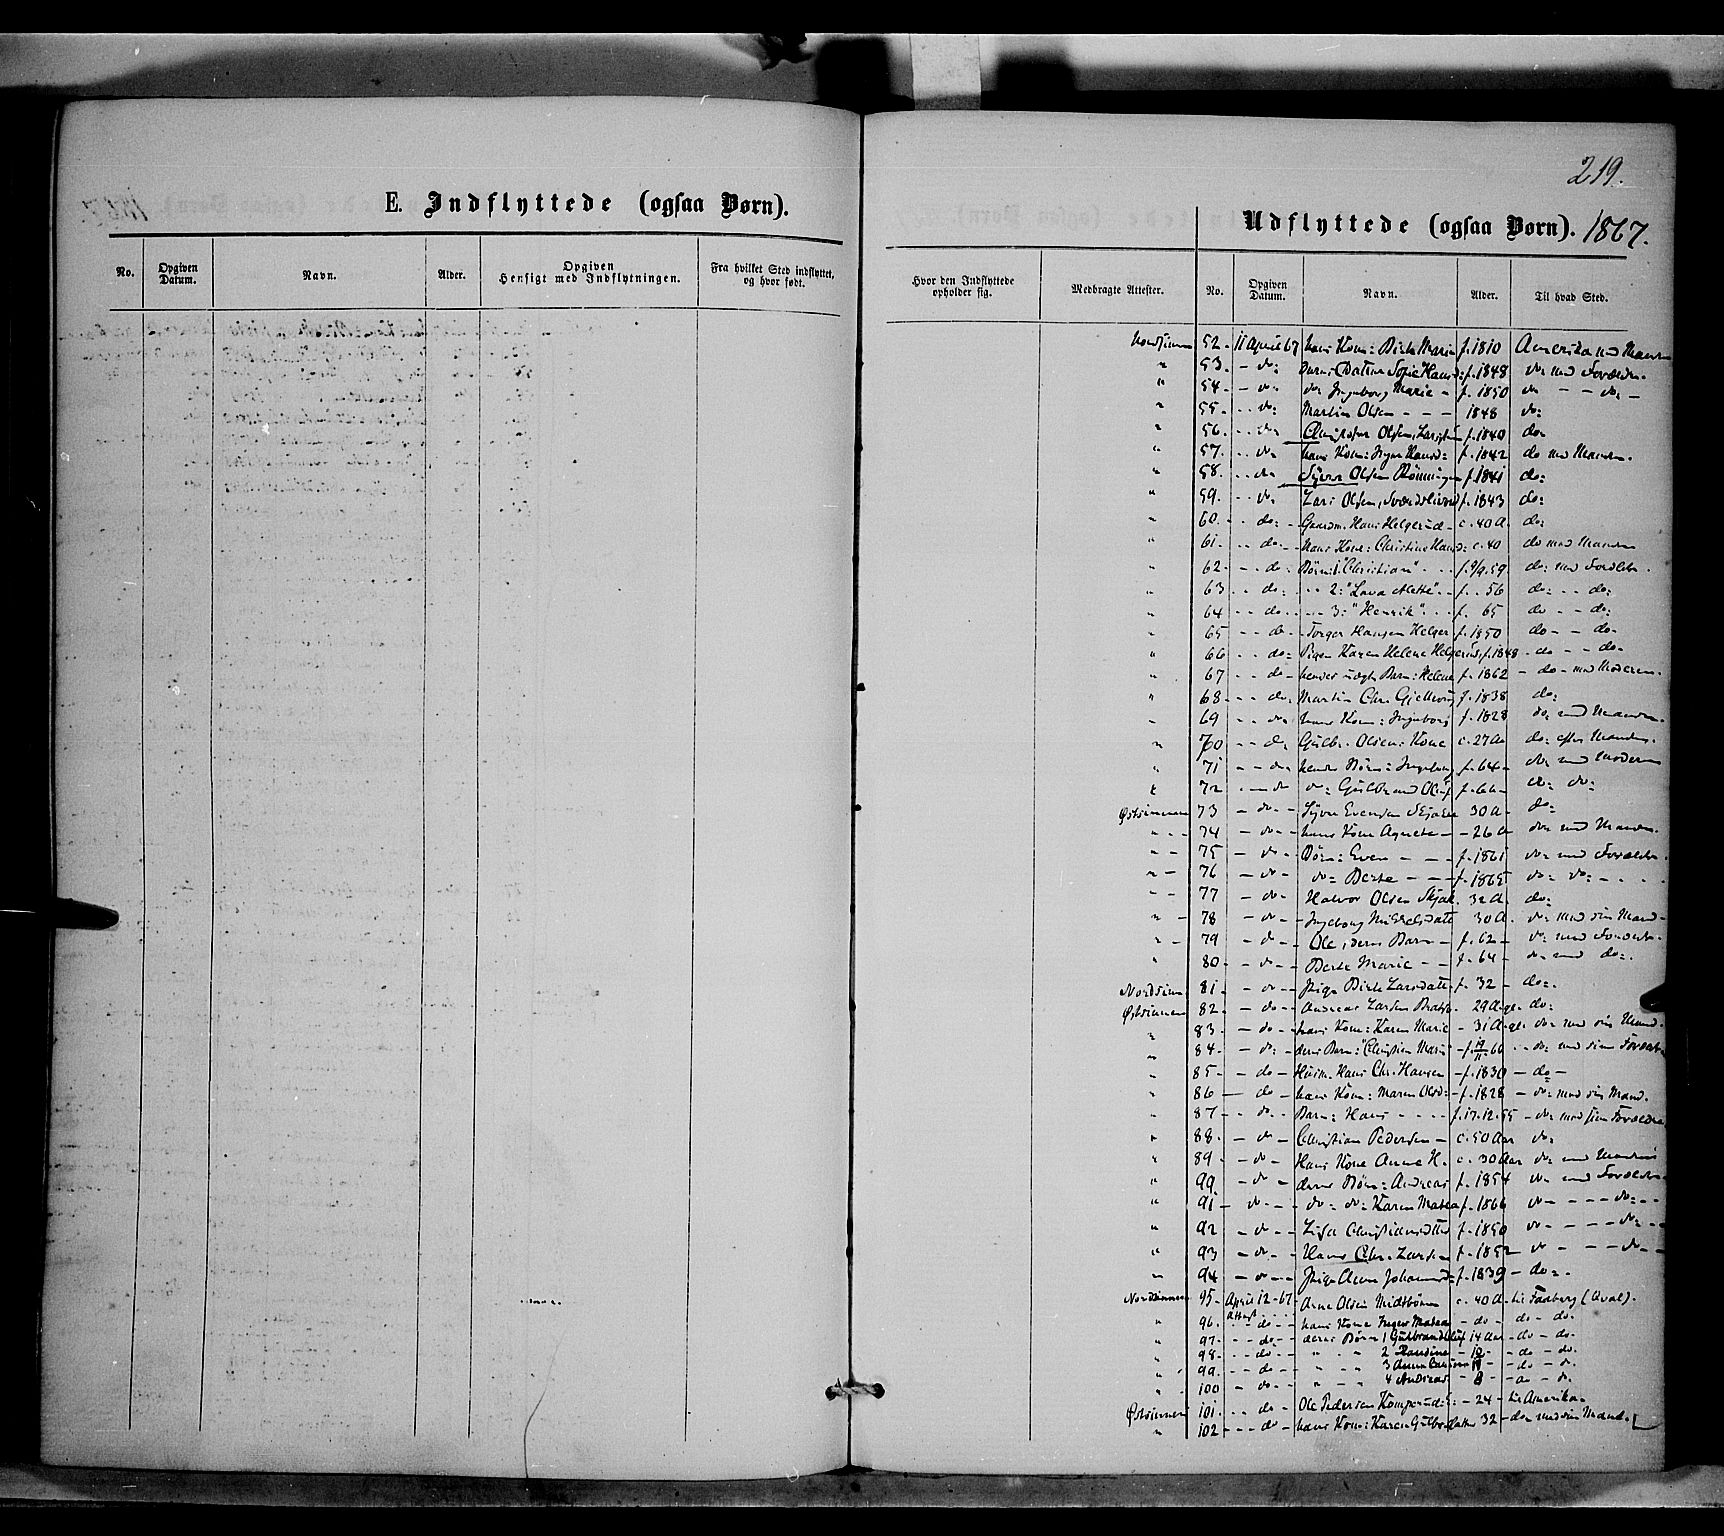 219.
E. Indflyttede (ogsaa Børn).
Udflyttede (ogsaa Børn). 1867.
No. Opgiven Datum. Navn. Alder. Opgiven Hensigt med Indflytningen. Fra hvilket Sted indflyttet, og hvor født.
Hvor den Indflyttede opholder sig. Medbragte Attester. No. Opgiven Datum. Navn. Alder. Til hvad Sted.
52. 11 April 67 hans Kone: Birte Marie f. 1810 Amerika med Manden
" 53. - do: Sofie Hansd: f. 1848 do: med Foræld.
" 54. - do: do: Ingeborg Marie - f. 1850 do - - do: -
" 55. - - do: Martin Olsen - - - 1848 do:
" 56. - - do Christofer Olsen, f. 1840 do:
" 57. - - do- hans Kone: Hansd: f. 1842 do med Manden.
" 58. - - do Syver Olsen Rönningen f. 1841 do:
" 59. - - do. Lars Olsen, f. 1843 do:
" 60. - - do: - Gaardm. Hans Helgerud - c. 40 A. do:
" 61. - - do. - hans Kone: Christine Hansd: c. 40 do med Manden
" 62. - - do: Børn: 1. "Christian" - - f. 9/9. 59. do: med Foreldre.
" 63. - do: - - 2: "Lava Mette" - - f. - . 56 do: - - do:
" 64 - - do: - - 3: "Henrik" - - f. 65 do - - do:
" 65 - - do - Torger Hansen Helger f. 1850 do - - do-
" 66 - - do: Pigen Karen Helene Helgeruds f. 1848 - do - - do-
" 67 - - do - hendes uægte Barn: Helene f. 1862 - do - med Moderen.
" 68 - - - do. Martin Chr. f. 1838 do:
" 69 - - do- hans Kone: Ingeborg f. 1828 do: med Manden.
" 70 - - do: Gulbr. Olsens Kone c. 27 Aa do: efter Manden.
" 71 - - do - hendes Børn: Ingeborg f. 64 - do: med Moderen
" 72 - - do do: Gulbrand Oluf f. 66 - do: do:
Østsinnen 73 - do - - Syver Evensen 30 A - do:
" - - 74 - do - - hans Kone Agnete - - 26 A do: med Manden.
" - - 75 - do - Børn: Even - - - f. 1861 do: med Foreldre.
" - 76 - do - do: Berte - - - f. 1865 do: do: - - -
" - 77 - do - Halvor Olsen 32 A. do:
" - 78 - do - - Ingeborg Mikkelsdatte 30 A. do: med sin Mand -
" - 79 - do - - Ole, deres Barn - f. 62 - do: med Foreldre.
" 80 - - do - - Berte Marie - - f. 64 - do - med do:.
Nordsinn 81 - - do - - Pige Birte Larsdatt f. 32 - do:.
Østsinnen 82. - do - - Andreas Larsen 29 A. gl. do:
" 83. - do - hans Kone: Karen Marie - 31 A. gl. do: med sin Mand.
" 84. - do: - deres Barn: "Christian Marie" - f. 19/11. 66 - - do: med sine Foreldre
" 85 - - do - Husm. Hans Chr. Hansen - f. 1830 - do -
" 86 - do - hans Kone: Maren Olsd: - f. 1828 - do: med sin Mand.
" 87 - - do. - Barn: Hans - - - - f. 17.12.55 - do: med sine Forældre
" 88. - do - Christian Pedersen - c. 50 Aar do:
" 89 - - do - Hans Kone Anne H. c. 30 Aar do: med Manden
" 99. - do - deres Børn: Andreas f. 1854 do: med Foreldre
" 91. - do - - do: do: Karen Mathea f. 1866 do - - - - do: - -
" 92 - do - Lisa Christiansdtr f. 1850 do - - - - do: -
" 93 - do - - Hans Chr. Larsen f. 1852 do - - - do - -
" 94 - do - - Pige Anne Johannesd: f. 1839 - do:.
Nordsinnen 95 - April 12 - 67 - Arne Olsen c. 40 A - til Faaberg (Aval).
" 96. Attest - - do - - hans Kone Inger Mathea - do - do - do-
" 97 - - - do - - deres Børn 1 Gulbrand Oluf 14 Aar - do - do-
" 98 - - do - - " - " 2 Randine - 12 - - do - do-
" 99 - - do - - " - - 3 Anne - 11 - - do - do.
" 100 - do - - " - - 4 Andreas - 8 - do - do.
Østsinnen 101 - - - do - Ole Pedersen - 24 - til Amerika.
" 102 - - - do - hans Kone: Karen Gulbrdatter 32 - do - med sin Mand.